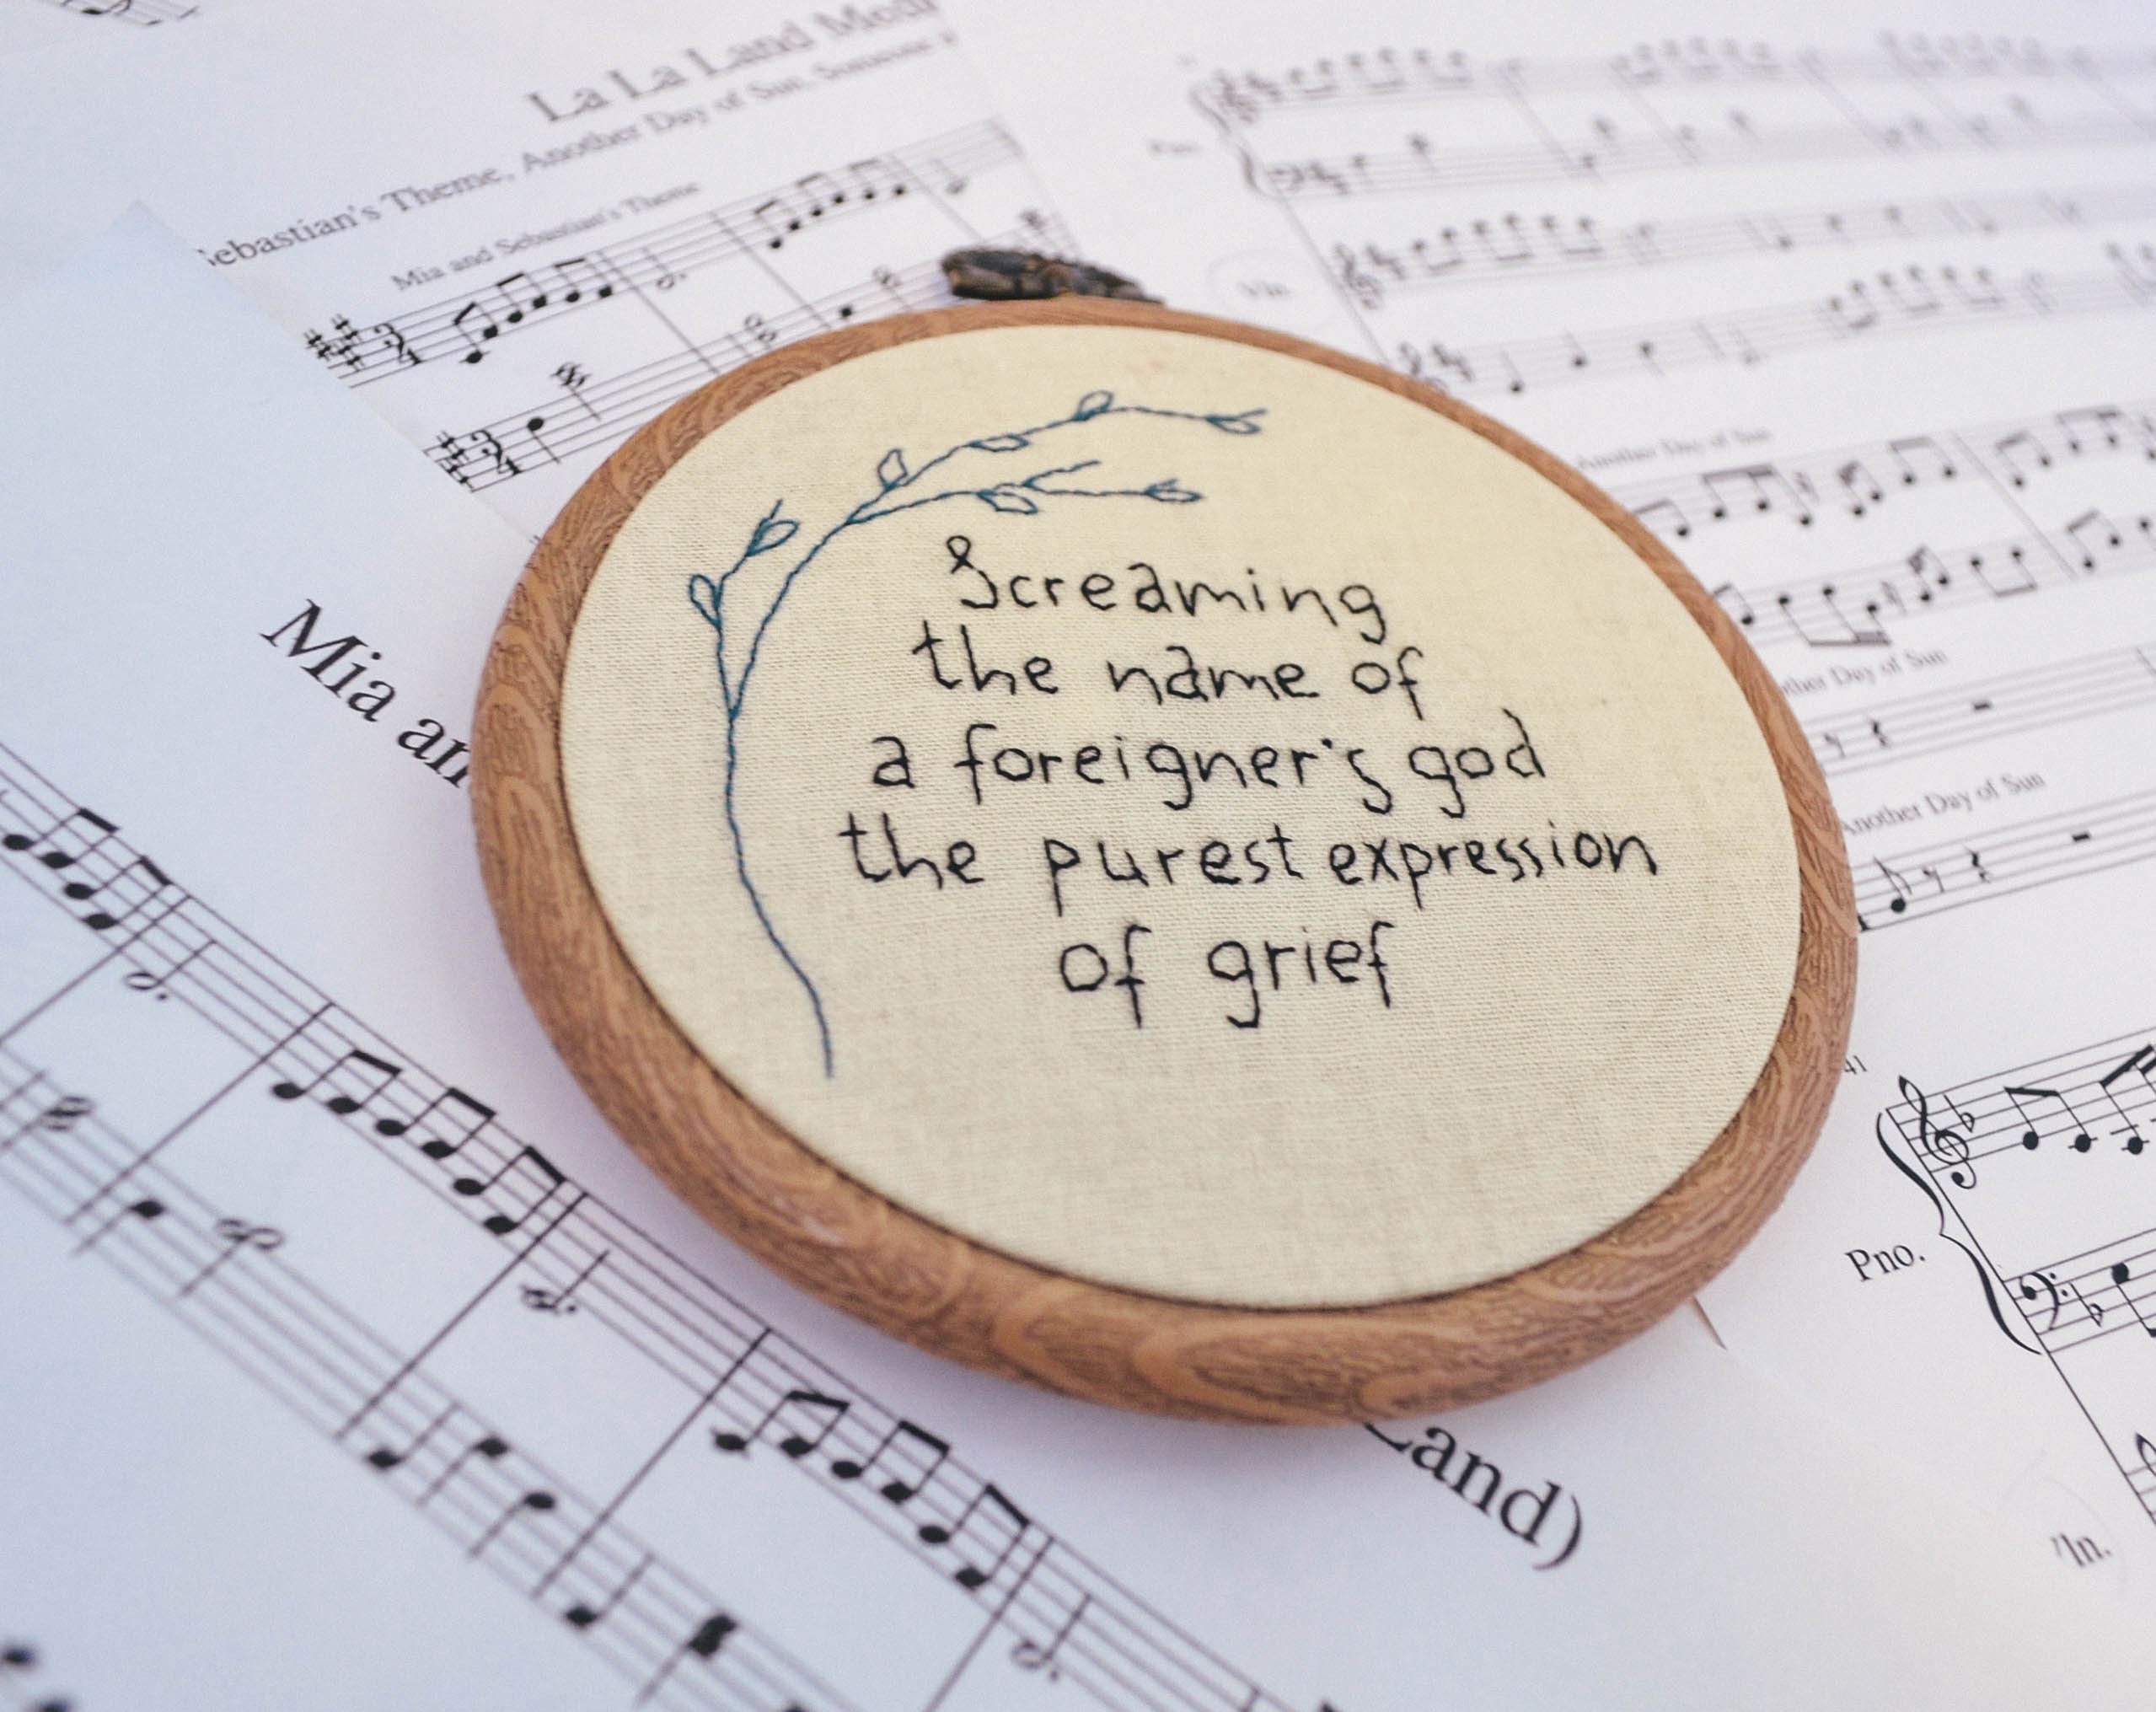 La La Land
Sebastian's Theme, Another Day of Sun, Someone
Mia and Sebastian's Theme
Another Day of Sun
Mia an
Screaming
the name of
a foreigner's god
the purest expression
of grief
Day of Sun
Another Day of Sun
41
Pno.
Land)